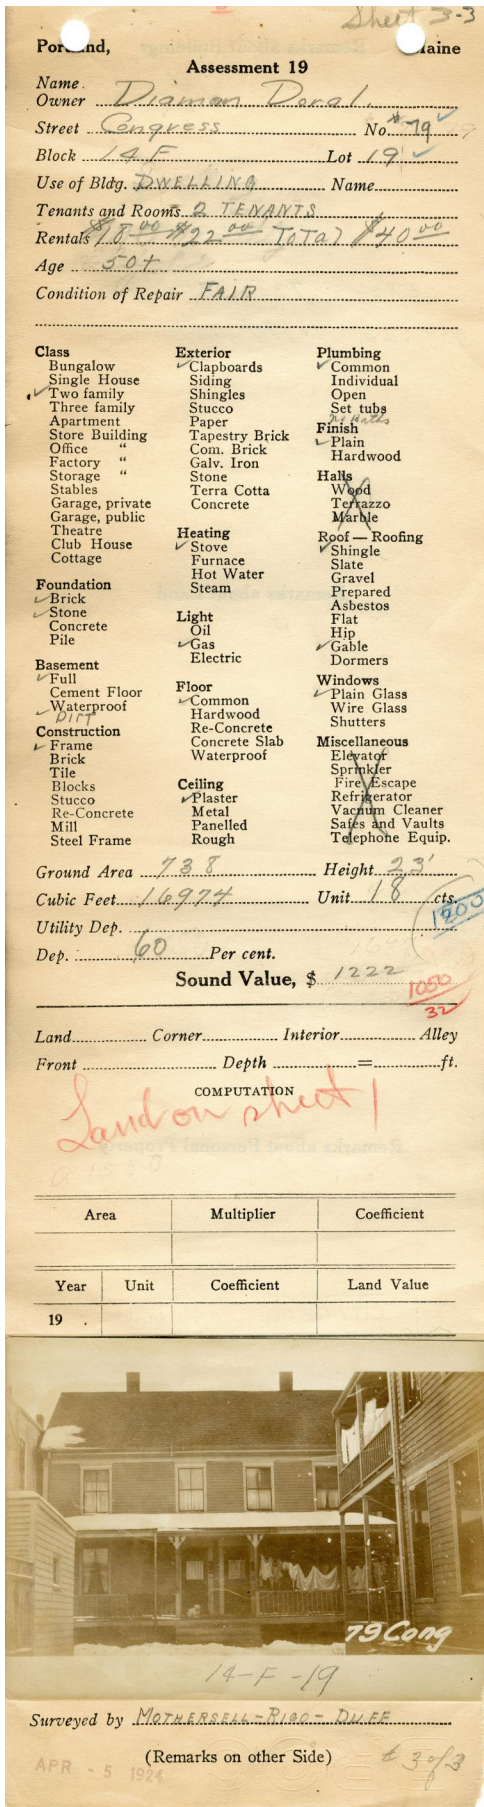 Sheet 3-3
Portland, Maine
Assessment 19
Name
Owner Diamon Doral
Street Congress No. #79
Block 14 F Lot 19
Use of Bldg. DWELLING Name
Tenants and Rooms 2 TENANTS
Rentals $18.00 $22.00 Total $40.00
Age 50+
Condition of Repair FAIR
Class
Bungalow
Single House
Two family
Three family
Apartment
Store Building
Office "
Factory "
Storage "
Stables
Garage, private
Garage, public
Theatre
Club House
Cottage
Foundation
Brick
Stone
Concrete
Pile
Basement
Full
Cement Floor
Waterproof
DIRT
Construction
Frame
Brick
Tile
Blocks
Stucco
Re-Concrete
Mill
Steel Frame
Exterior
Clapboards
Siding
Shingles
Stucco
Paper
Tapestry Brick
Com. Brick
Galv. Iron
Stone
Terra Cotta
Concrete
Heating
Stove
Furnace
Hot Water
Steam
Light
Oil
Gas
Electric
Floor
Common
Hardwood
Re-Concrete
Concrete Slab
Waterproof
Ceiling
Plaster
Metal
Panelled
Rough
Plumbing
Common
Individual
Open
Set tubs
No Baths
Finish
Plain
Hardwood
Halls
Wood
Terrazzo
Marble
Roof — Roofing
Shingle
Slate
Gravel
Prepared
Asbestos
Flat
Hip
Gable
Dormers
Windows
Plain Glass
Wire Glass
Shutters
Miscellaneous
Elevator
Sprinkler
Fire Escape
Refrigerator
Vacuum Cleaner
Safes and Vaults
Telephone Equip.
Ground Area 738 Height 23'
Cubic Feet 16974 Unit 18 cts.
1200
Utility Dep.
Dep. 60 Per cent.
Sound Value, $ 1222
1050
32
Land Corner Interior Alley
Front Depth = ft.
COMPUTATION
Land on sheet 1
Area Multiplier Coefficient
Year Unit Coefficient Land Value
19 .
79 Cong
14-F-19
Surveyed by MOTHERSELL-RIGO-DUFF
(Remarks on other Side)
APR - 5 1924
# 3 of 3